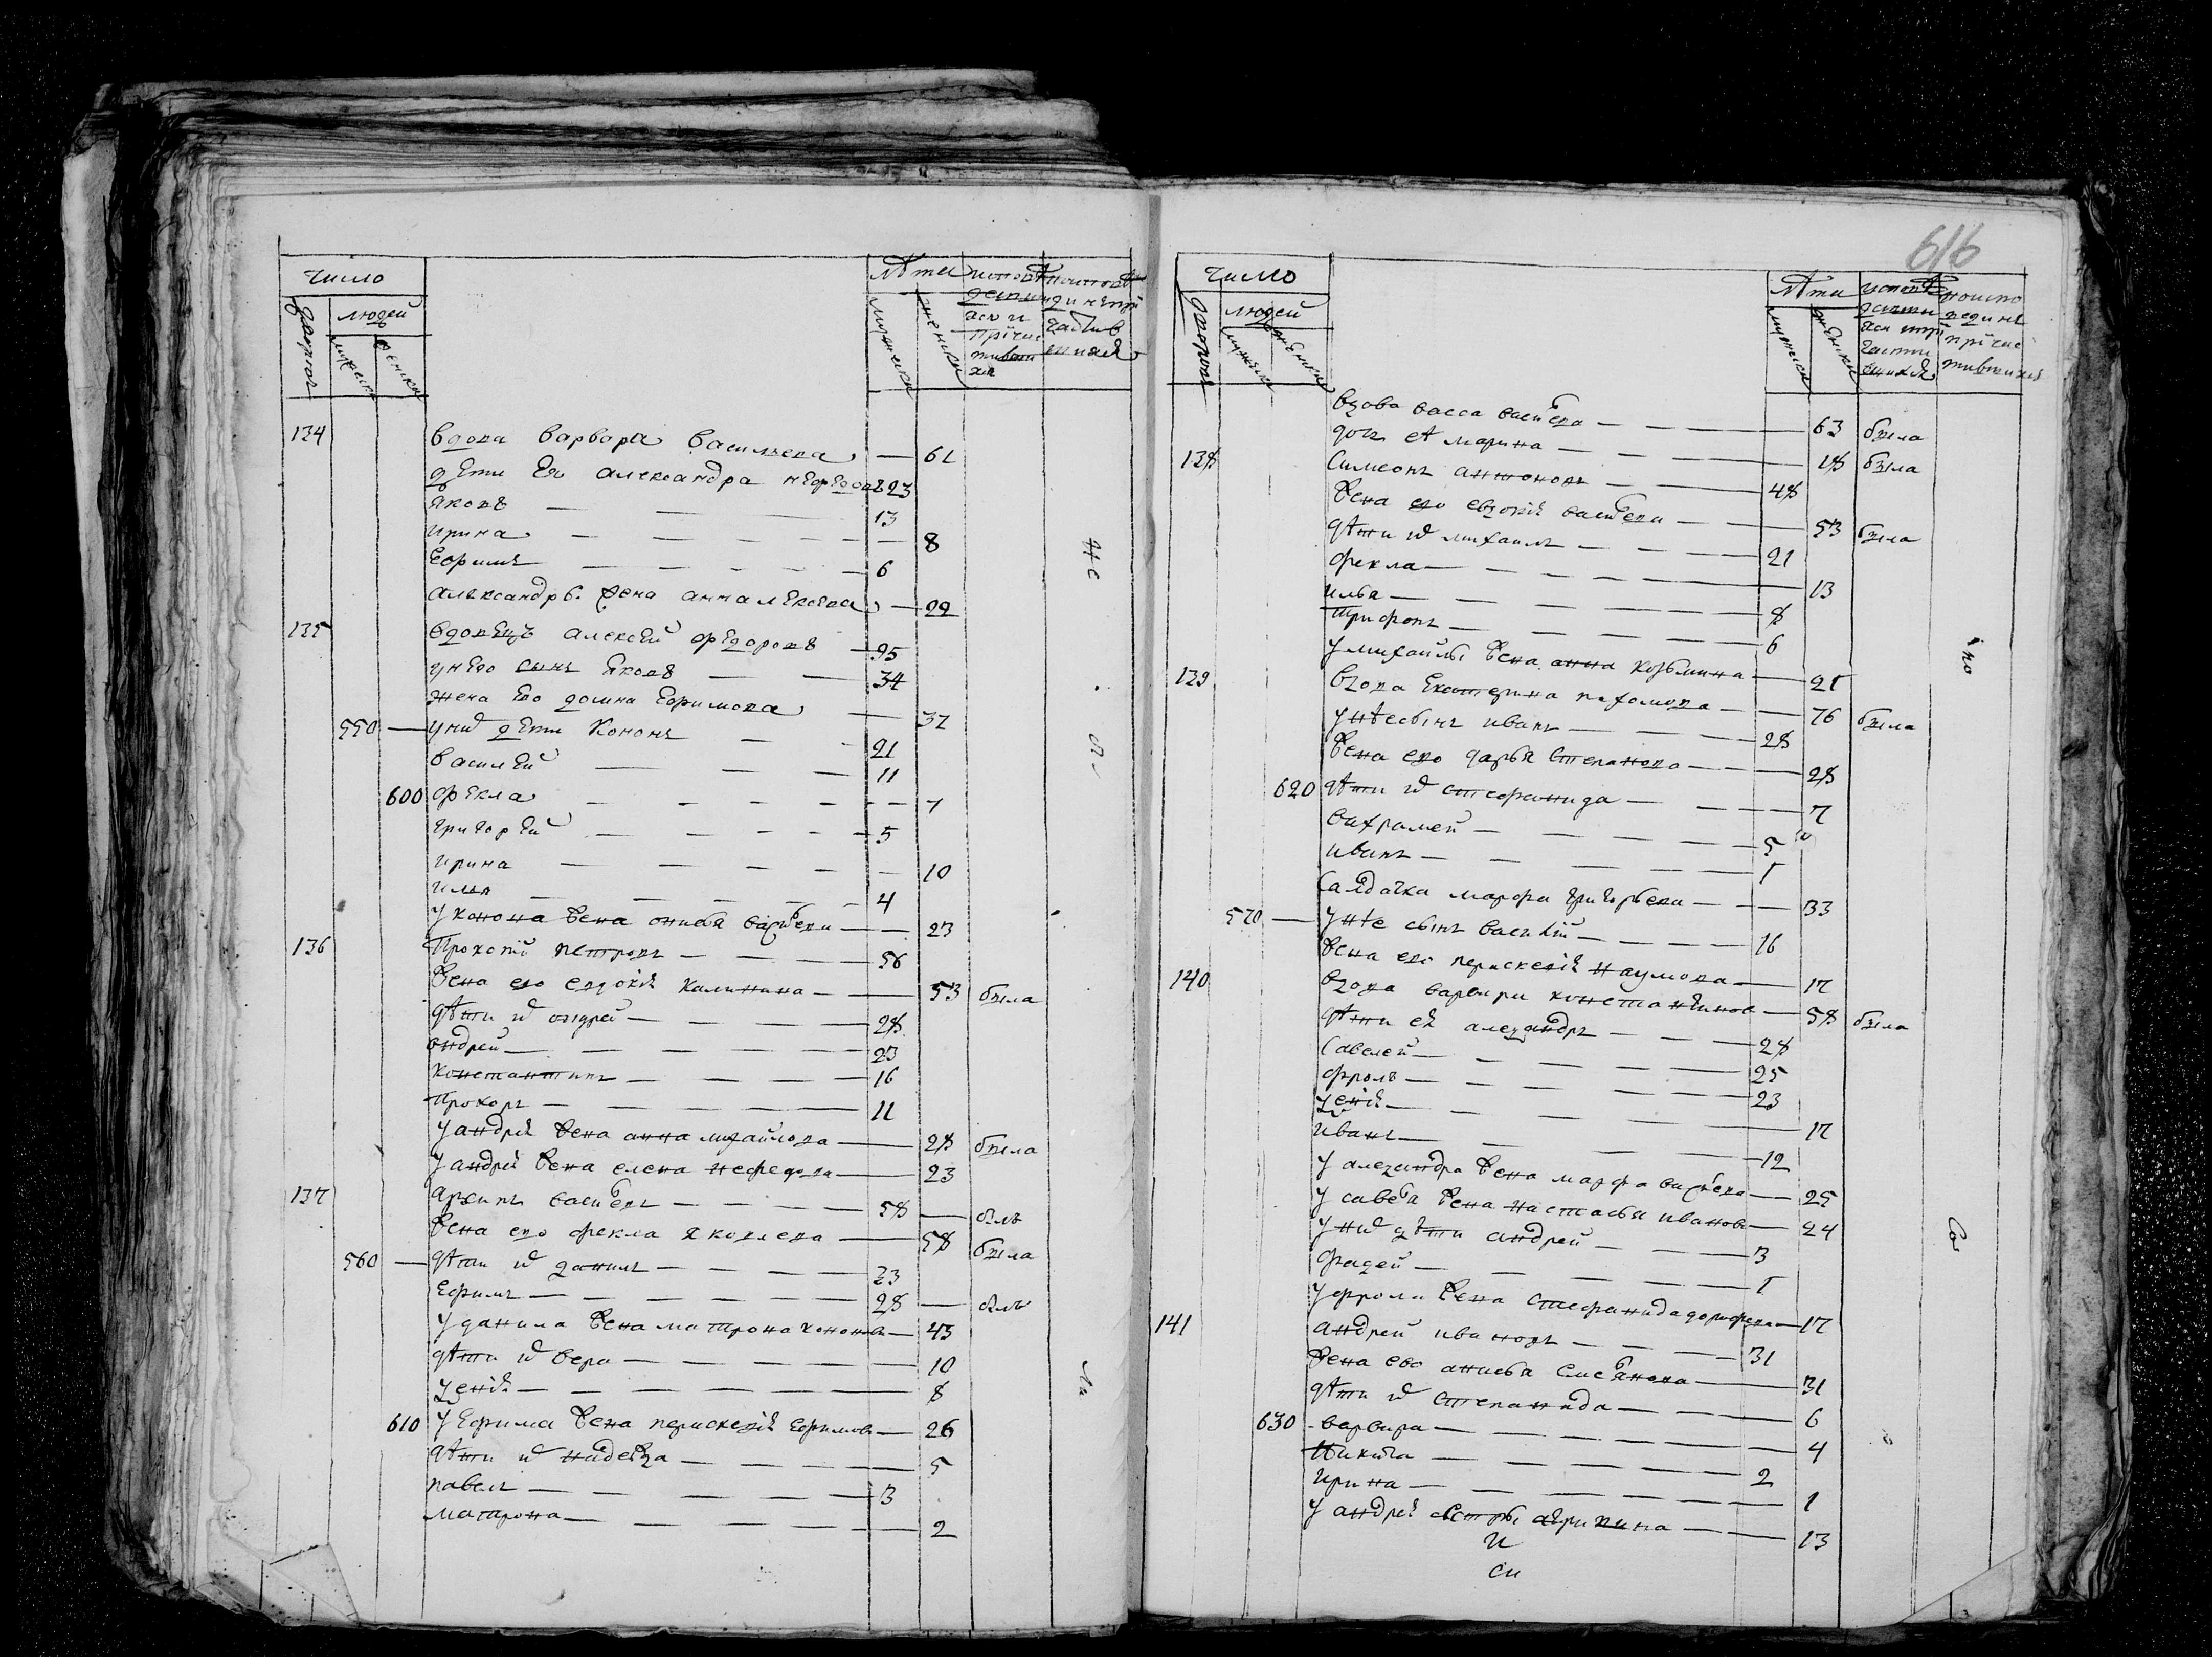 число
людей
дворовъ
мужеска
женска
лѣта
мужеска
женска
134 вдова варвара васильева — 61
дѣти Ево александра неѳедовъ 23
яковъ — 13
ирина — 8
Ефимъ — 6
александръ жена анна алексѣева — 22
135 вдовецъ алексѣй Ѳедоровъ — 95
у него сынъ яковъ — 34
жена Ево домна Ефимова — 37
550 — у них дѣти Кононъ — 21
василѣй — 11
600 фекла — 7
григорѣй — 5
ирина — 10
илья — 4
у конона жена анисья васильева — 23
136 Прокопий петровъ — 56
жена ево евдокія калинина — 53 была
дѣти их андрей — 28
андрей — 23
константинъ — 16
Прохоръ — 11
у андрея жена анна михайлова — 28 была
у андрея жена елена нефедова — 23
137 архипъ васильевъ — 58 — былъ
жена ево фекла яковлева — 58 была
560 — дѣти их данилъ — 33
Ефимъ — 28 — былъ
у данила жена матрона кононова — 43
дѣти их вера — 10
8
610 у Ефима жена перасковія Ефимова — 26
дѣти их надежда — 5
павелъ — 3
матрона — 2
Не
616
число
людей
дворовъ
мужеска
женска
лѣта
мужеска
женска
вдова васса васильева — 63 была
дочь еѣ марина — 18 была
138 Симеонъ антоновъ — 48
жена ево евдокія васильева — 53 была
дѣти их михаилъ — 21
фекла — 13
илья — 8
Трифонъ — 6
у михаилы жена анна козьмина — 21
139 вдова Екатерина пахомова — 76 была
у нѣе сынъ иванъ — 28
жена ево дарья степанова — 28
620 дѣти их стефанида — 7
вахрамей — 5
иванъ — 1
салдатка марфа григорьева — 33
570 — у нѣе сынъ василій — 16
жена ево перасковія наумова — 17
140 вдова варвара константинова — 58 была
дѣти еѣ александръ — 28
Савелей — 25
фролъ — 23
17
иванъ — 12
у александра жена марфа васильева — 25
у савелья жена настасья иванова — 24
у них дѣти андрей — 3
фадей — 1
у фрола жена стефанида дорофеева — 17
141 андрей ивановъ — 31
жена ево анисья — 31
дѣти их степанида — 6
630 варвара — 4
Никита — 2
ирина — 1
у андрея сестра агрипина — 13
и
си